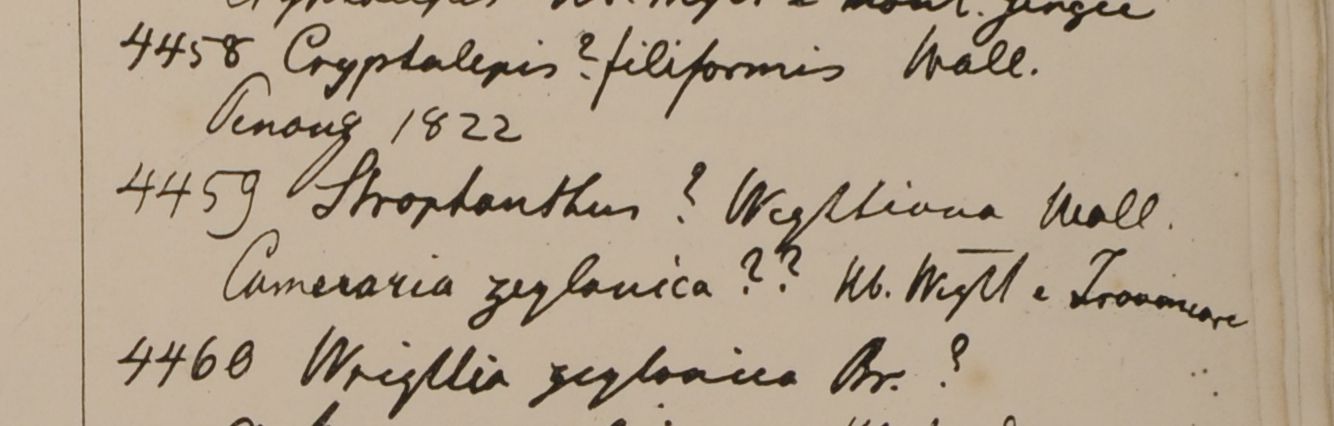 Cryptolepis Hb. Wight e mont. Gingee
4458 Cryptolepis? filiformis Wall.
Penang 1822
4459 Strophanthus? Wightiana Wall.
Cameraria zeylanica?? Hb. Wight e Travancore
4460 Wrightia zeylanica Br.?